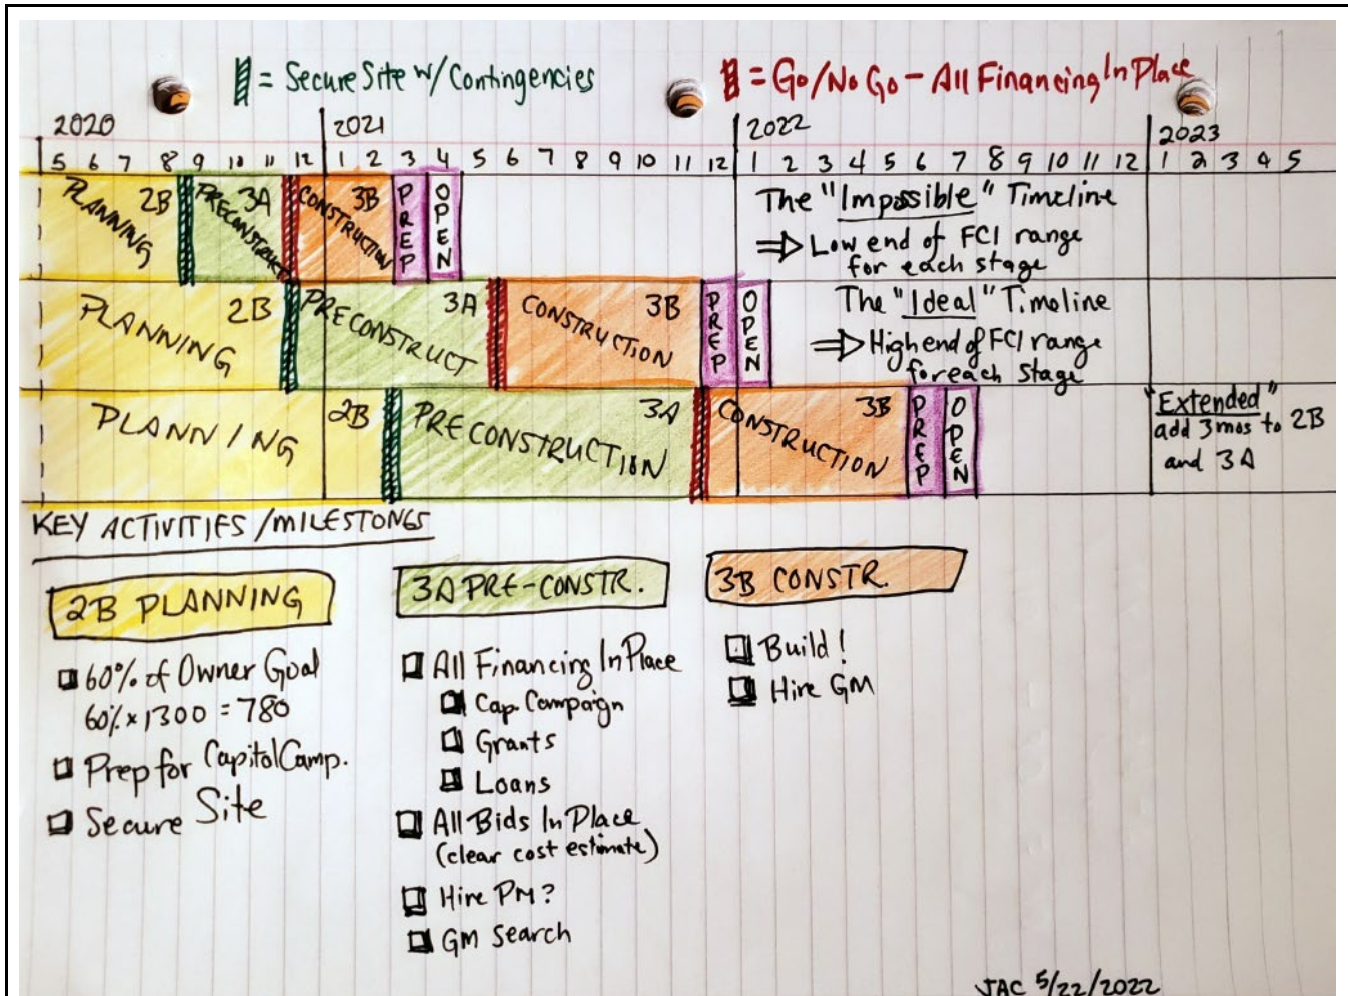 = Secure Site w/Contingencies
= Go/No Go - All Financing In Place
2020 2021 2022 2023
5 6 7 8 9 10 11 12 1 2 3 4 5 6 7 8 9 10 11 12 1 2 3 4 5 6 7 8 9 10 11 12 1 2 3 4 5
PLANNING 2B PRECONSTRUCT 3A CONSTRUCTION 3B PREP OPEN
The "Impossible" Timeline
⇒ Low end of FCI range
for each stage
PLANNING 2B PRECONSTRUCT 3A CONSTRUCTION 3B PREP OPEN
The "Ideal" Timeline
⇒ High end of FCI range
for each stage
PLANNING 2B PRECONSTRUCTION 3A CONSTRUCTION 3B PREP OPEN
"Extended"
add 3mos to 2B
and 3A
KEY ACTIVITIES/MILESTONES
2B PLANNING
60% of Owner Goal
60% x 1300 = 780
Prep for Capitol Camp.
Secure Site
3A PRE-CONSTR.
All Financing In Place
Cap. Campaign
Grants
Loans
All Bids In Place
(clear cost estimate)
Hire PM?
GM Search
3B CONSTR.
Build!
Hire GM
JAC 5/22/2022